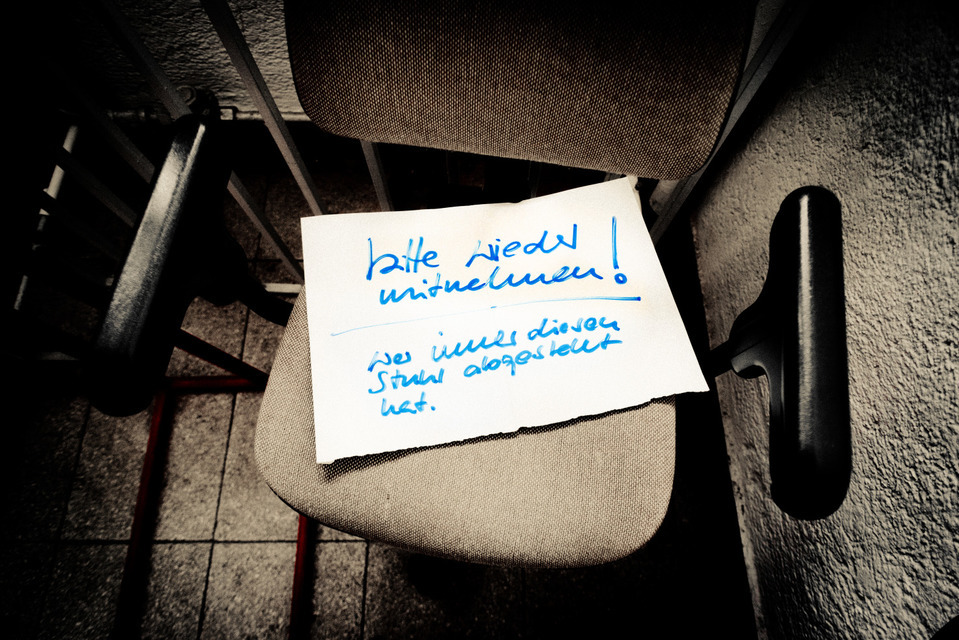 bitte wieder
mitnehmen!
wer immer diesen
Stuhl abgestellt
hat.